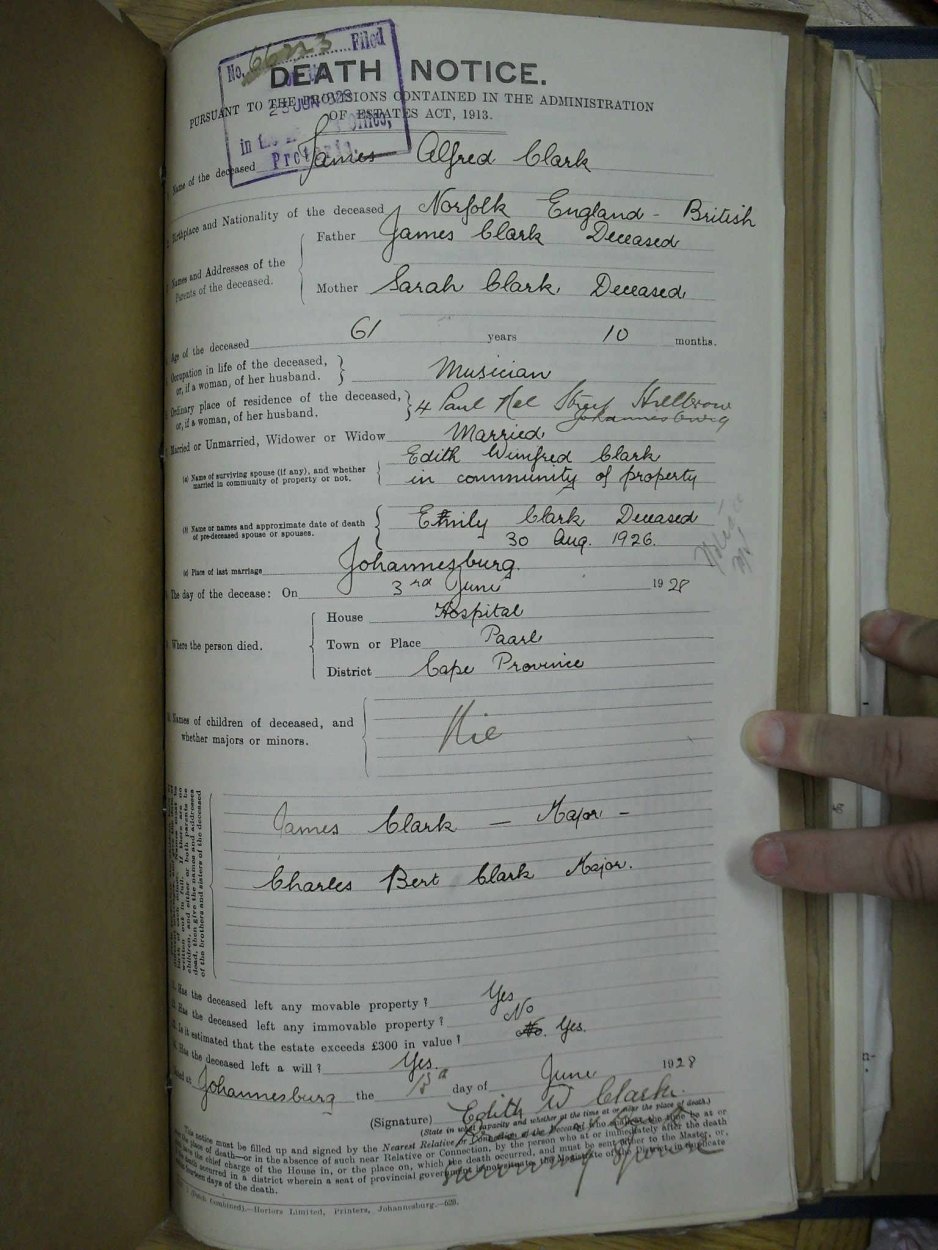 No. 66223 Filed
DEATH NOTICE.
23 JUN 1928
PURSUANT TO THE PROVISIONS CONTAINED IN THE ADMINISTRATION
OF ESTATES ACT, 1913.
in the Office,
Pretoria.
Name of the deceased James Alfred Clark
Birthplace and Nationality of the deceased Norfolk England - British
Names and Addresses of the Parents of the deceased.
Father James Clark Deceased
Mother Sarah Clark Deceased
Age of the deceased 61 years 10 months.
Occupation in life of the deceased, or, if a woman, of her husband. Musician
Ordinary place of residence of the deceased, or, if a woman, of her husband. 4 Paul Nel Street Hillbrow
Johannesburg
Married or Unmarried, Widower or Widow Married
(a) Name of surviving spouse (if any), and whether married in community of property or not.
Edith Winifred Clark
in community of property
(b) Name or names and approximate date of death of pre-deceased spouse or spouses.
Emily Clark Deceased
30 Aug. 1926.
(c) Place of last marriage Johannesburg.
The day of the decease: On 3rd June 1928
Where the person died.
House Hospital
Town or Place Paarl
District Cape Province
Names of children of deceased, and whether majors or minors.
Nil
children, and either or both parents be
dead, then give the names and addresses
of the brothers and sisters of the deceased
James Clark — Major —
Charles Bert Clark Major.
Has the deceased left any movable property? Yes
Has the deceased left any immovable property? No
Is it estimated that the estate exceeds £300 in value? No. Yes.
Has the deceased left a will? Yes.
Dated at Johannesburg the day of June 1928
(Signature) Edith W Clark.
(State in what capacity and whether at the time at or near the place of death.)
Surviving Spouse
This notice must be filled up and signed by the Nearest Relative or Connection of the Deceased who shall at the time be at or
the place of death—or in the absence of such near Relative or Connection, by the person who at or immediately after the death
the chief charge of the House in, or the place on, which the death occurred, and must be sent either to the Master, or,
death occurred in a district wherein a seat of provincial government is not situate, the Magistrate of the District, in duplicate
fourteen days of the death.
(Dutch Combined).—Hortors Limited, Printers, Johannesburg.—620.